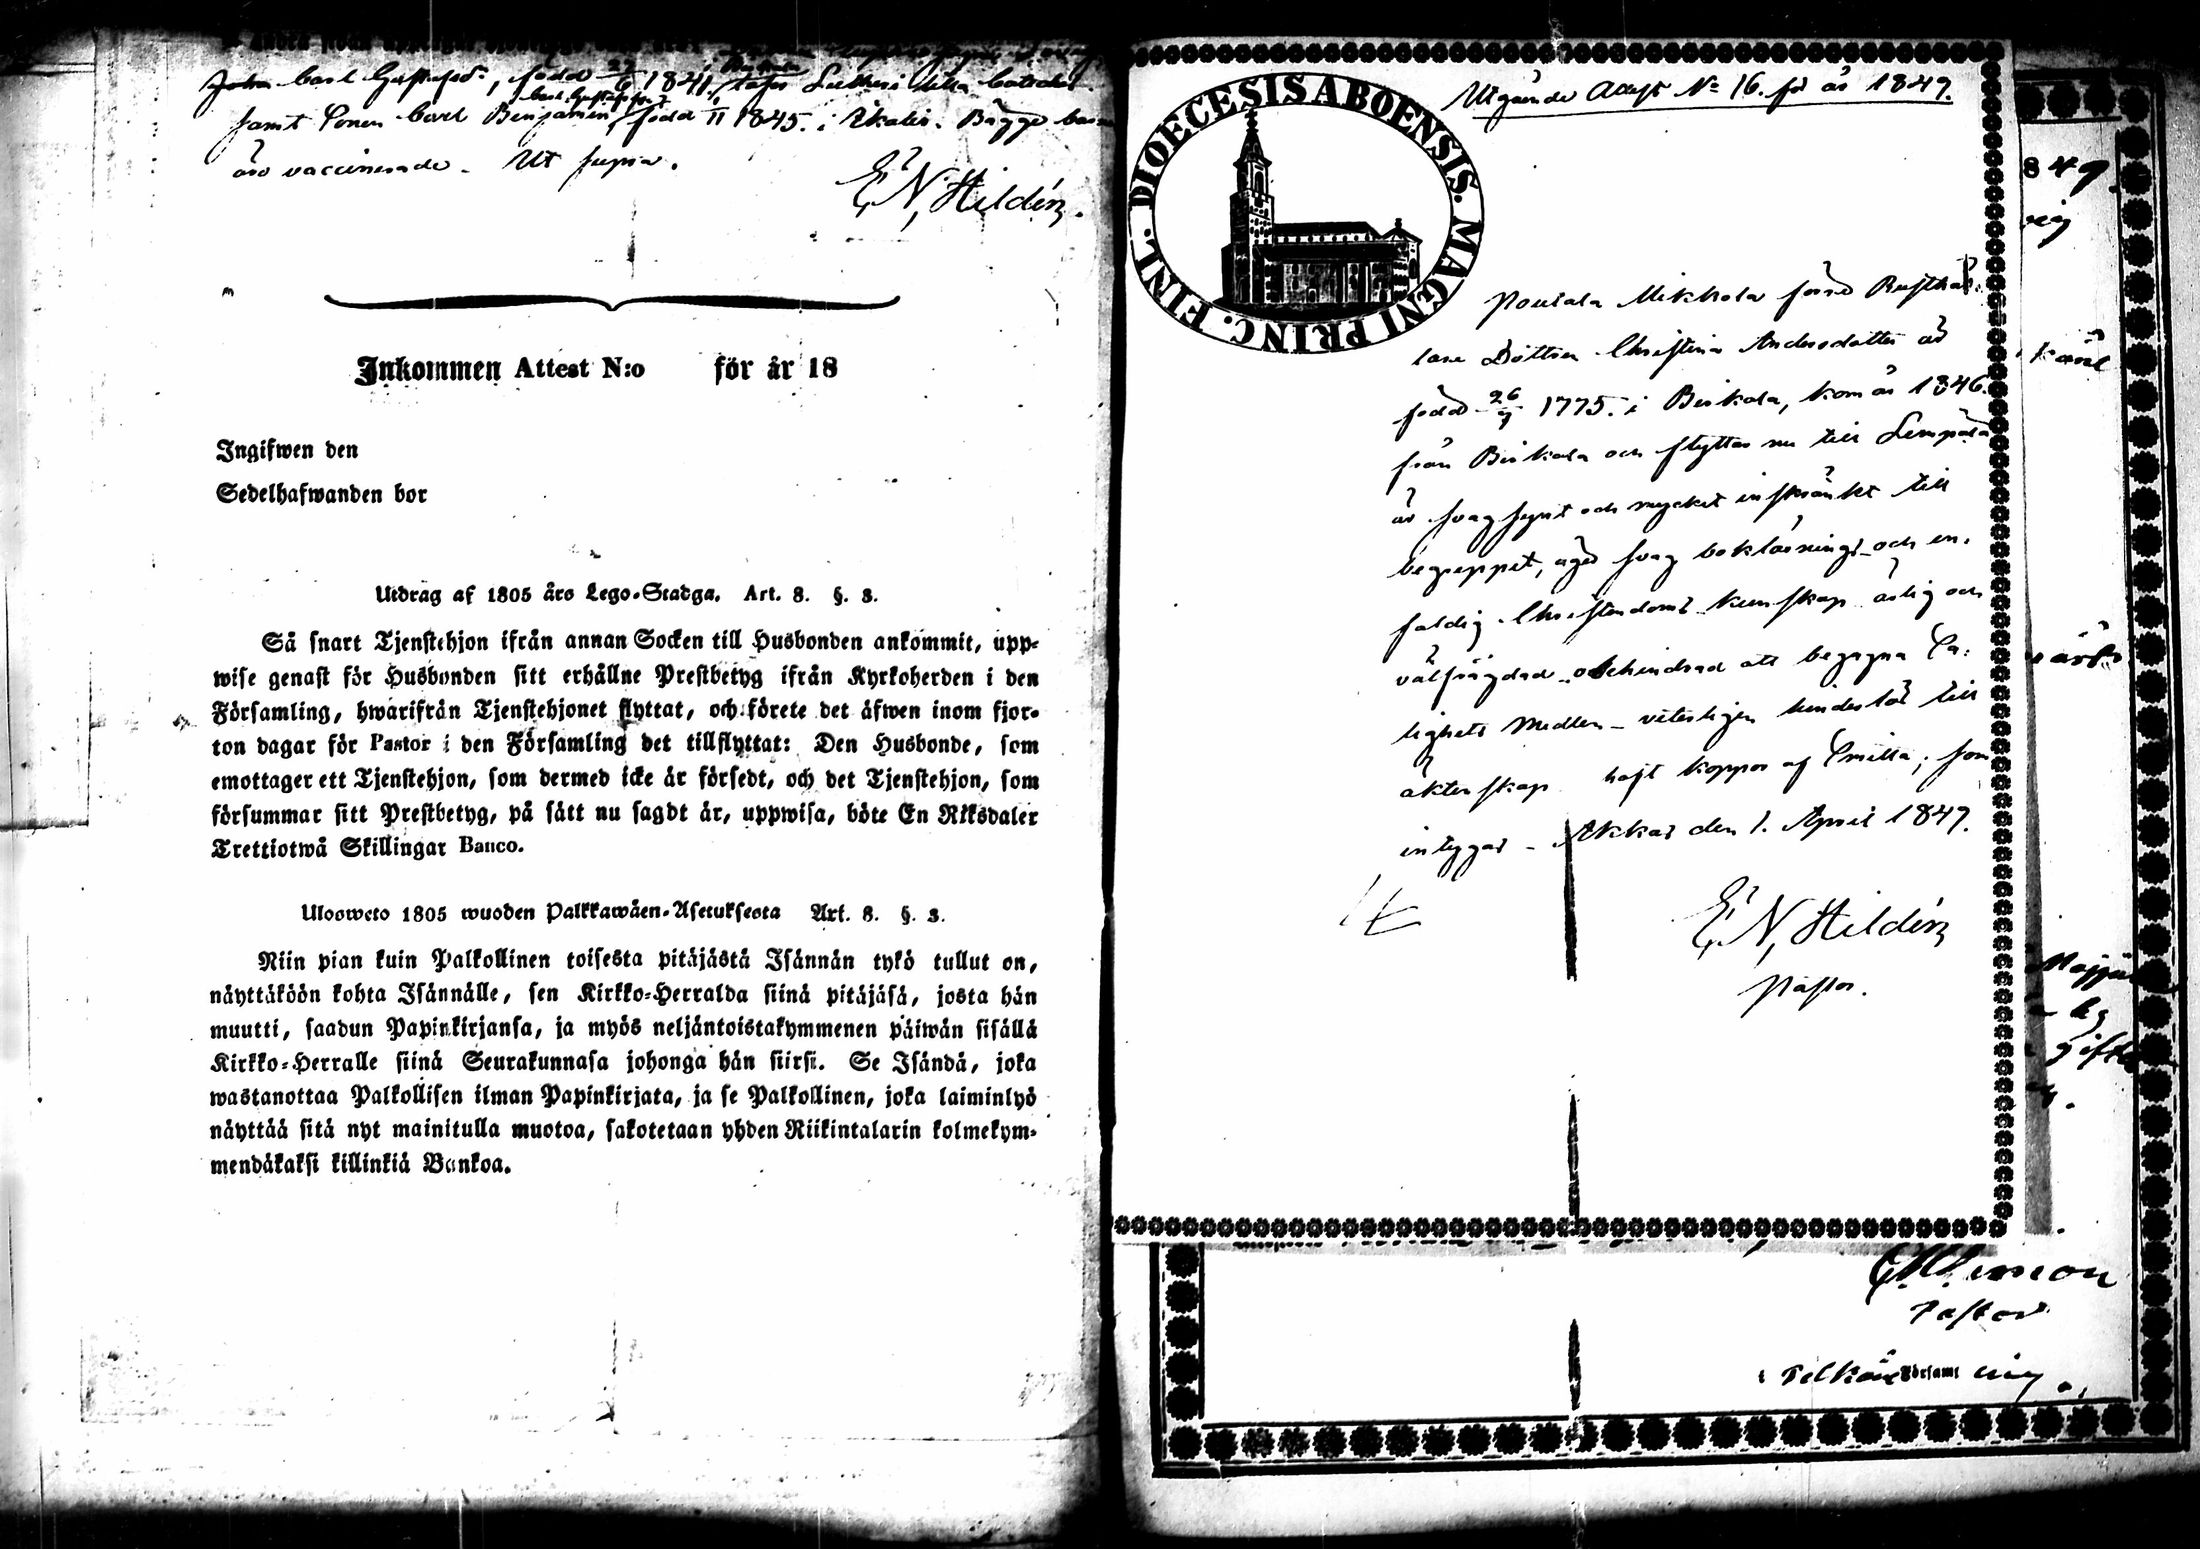 John Carl Gustafsson, född 27/6 1841, läser Lutheri lilla
samt Sonen Carl Benjamin Carl Gustafsson född 11 1845. i Ikalis. Bägge
äro vaccinerade. Ut supra.
E. N. Hildén.
Inkommen Attest N:o för år 18
Ingifwen den
Sedelhafwanden bor
Utdrag af 1805 års Lego-Stadga. Art. 8. §. 3.
Så snart Tjenstehjon ifrån annan Socken till Husbonden ankommit, upp-
wise genast för Husbonden sitt erhållne Prestbetyg ifrån Kyrkoherden i den
Församling, hwarifrån Tjenstehjonet flyttat, och förete det äfwen inom fjor-
ton dagar för Pastor i den Församling det tillflyttat: Den Husbonde, som
emottager ett Tjenstehjon, som dermed icke är försedt, och det Tjenstehjon, som
försummar sitt Prestbetyg, på sätt nu sagdt är, uppwisa, böte En Riksdaler
Trettiotwå Skillingar Banco.
Ulosweto 1805 wuoden Palkkawäen-Asetuksesta Art. 8. §. 3.
Niin pian kuin Palkollinen toisesta pitäjästä Isännän tykö tullut on,
näyttäköön kohta Isännälle, sen Kirkko-Herralda siinä pitäjäsä, josta hän
muutti, saadun Papinkirjansa, ja myös neljäntoistakymmenen päiwän sisällä
Kirkko-Herralle siinä Seurakunnasa johonga hän siirsi. Se Isändä, joka
wastanottaa Palkollisen ilman Papinkirjata, ja se Palkollinen, joka laiminlyö
näyttää sitä nyt mainitulla muotoa, sakotetaan yhden Riikintalarin kolmekym-
mendäkaksi killinkiä Bankoa.
DIOECESIS ABOENSIS. MAGNI PRINC. FINL.
Utgående Attest No 16. för år 1849.
Poutala Mikkola förre Rusthål-
lare Dottren Christina Andersdotter är
född 26/7 1775. i Birkala, kom år 1846.
från Birkala och flyttar nu till Lempälä
är svagsynt och mycket inskränkt till
begreppet, äger svag boklärnings och en-
faldig Christendoms kunskap ärlig och
välfrägdad obehindrad att begagna Sa-
lighets Medlen - veterligen hinderslös till
äktenskap haft koppor af Smitta, som
intygas - Akkas den 1. April 1849.
E. N. Hildén
Pastor.
849.
Pastor
i Pelkäne Församl ing.